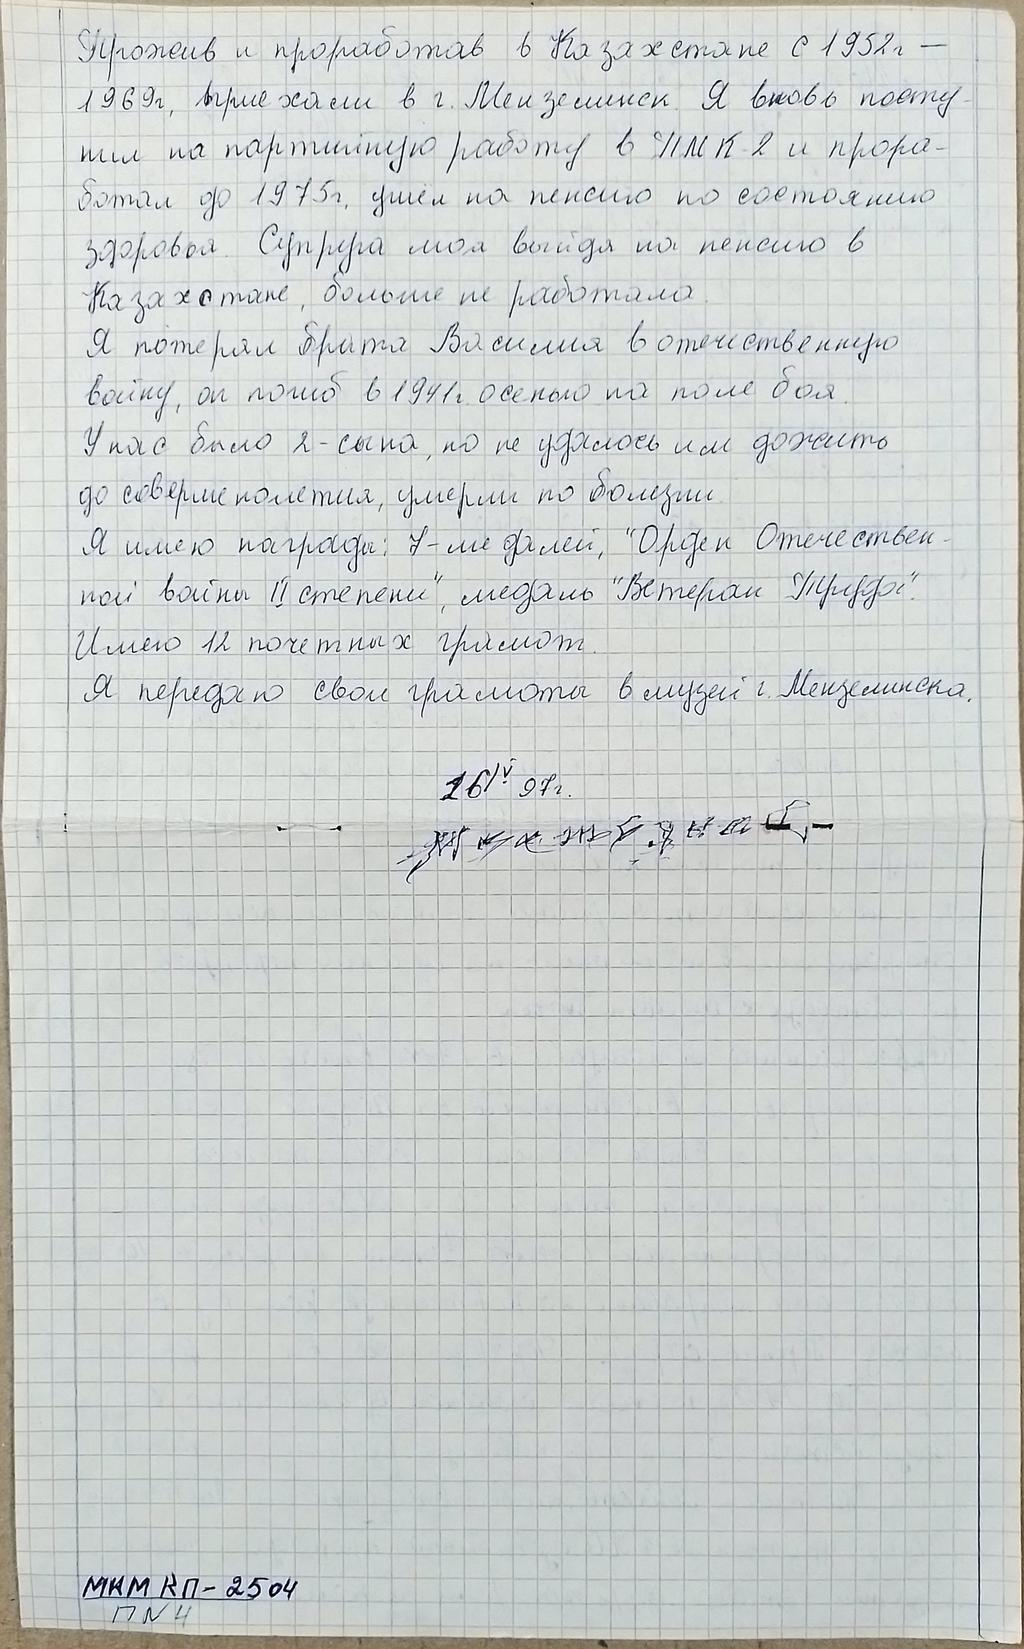 Прожив и проработав в Казахстане с 1952г –
1969г, приехали в г. Мензелинск. Я вновь посту-
пил на партийную работу в ПМК-2 и прора-
ботал до 1975г, ушёл на пенсию по состоянию
здоровья. Супруга моя выйдя на пенсию в
Казахстане, больше не работала.
Я потерял брата Василия в отечественную
войну, он погиб в 1941г. осенью на поле боя.
У нас было 2-сына, но не удалось им дожить
до совершенолетия, умерли по болезни.
Я имею награды: 7-медалей, "Орден Отечествен-
ной войны II степени", медаль "Ветеран Труда".
Имею 12 почетных грамот.
Я передаю свои грамоты в музей г. Мензелинска.
16/V 97г.
МКМ КП-2504
П№4